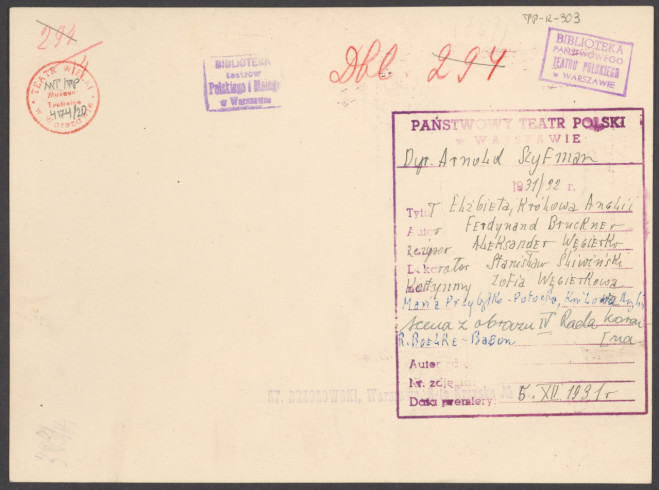 TP-R-303
294
4
TEATR WIELKI
MT/TP
Muzeum
Teatralne
4174/20
w Warszawie
BIBLIOTEKA
teatrów
Polskiego i Małego
w Warszawie
Dbl. 294
BIBLIOTEKA
PAŃSTWOWEGO
TEATRU POLSKIEGO
w WARSZAWIE
PAŃSTWOWY TEATR POLSKI
w WARSZAWIE
Dyr. Arnold Szyfman
1931/32 r.
Tytuł Elżbieta, Królowa Anglii
Autor Ferdynand Bruckner
Reżyser Aleksander Węgierko
Dekorator Stanisław Śliwiński
Kostyumy Zofia Węgierkowa
Maria Przybyłko-Potocka, Królowa Angl
scena z obrazu IV Rada koron
R. Boelke - Bacon [na
Autor zdję
Nr. zdjęcia
ST. BRZOZOWSKI, Warszawa
Data premiery: 5. XII. 1931 r